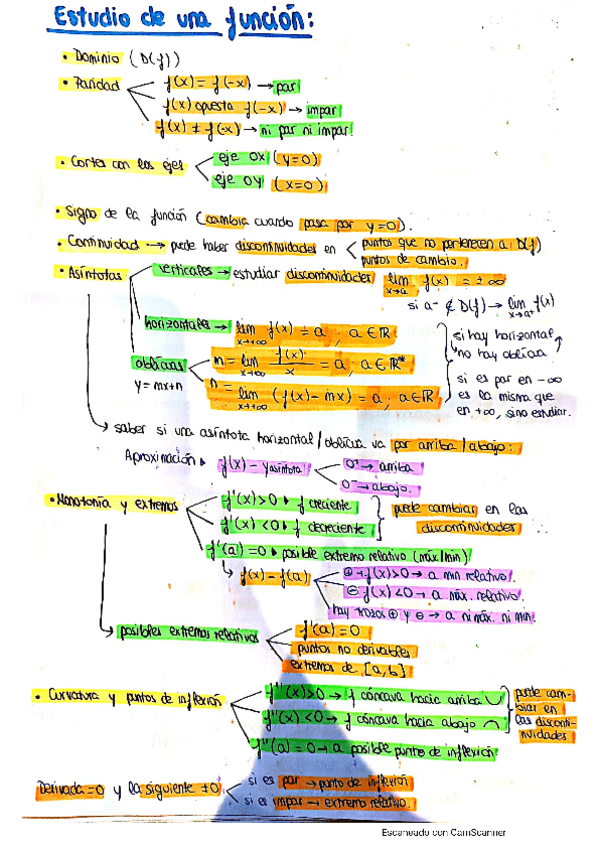 Estudio de una función:
• Dominio (D(f))
• Paridad
f(x) = f(-x) → par
f(x) opuesta f(-x) → impar
f(x) ≠ f(-x) → ni par ni impar.
• Cortes con los ejes
eje OX (y=0)
eje OY (x=0)
• Signo de la función (cambia cuando pasa por y=0).
• Continuidad → puede haber discontinuidades en
puntos que no pertenecen a D(f)
puntos de cambio.
• Asíntotas
verticales → estudiar discontinuidades lim x→a f(x) = ±∞
si a⁻ ∉ D(f) → lim x→a⁺ f(x)
horizontales → lim x→+∞ f(x) = a, a∈ℝ
si hay horizontal,
no hay oblicua
oblicuas
y=mx+n
m = lim x→+∞ f(x)/x = a, a∈ℝ*
n = lim x→+∞ (f(x)-mx) = a, a∈ℝ
si es par en -∞
es la misma que
en +∞, sino estudiar.
→ saber si una asíntota horizontal/oblicua va por arriba/abajo:
Aproximación ▸ f(x) - y asíntota
0⁺ → arriba
0⁻ → abajo.
• Monotonía y extremos
f'(x)>0 ▸ f creciente
f'(x)<0 ▸ f decreciente
puede cambiar en las
discontinuidades
f'(a)=0 ▸ posible extremo relativo (máx/min)
↳ f(x) - f(a)
⊕ → f(x)>0 → a min relativo.
⊖ f(x)<0 → a máx. relativo.
hay trozos ⊕ y ⊖ → a ni máx. ni min.
→ posibles extremos relativos
f'(a)=0
puntos no derivables
extremos de [a,b]
• Curvatura y puntos de inflexión
f''(x)>0 → f cóncava hacia arriba ∪
f''(x)<0 → f cóncava hacia abajo ∩
f''(a)=0 → a posible punto de inflexión
puede cam-
biar en
las disconti-
nuidades
Derivada=0 y la siguiente ≠0
si es par → punto de inflexión
si es impar → extremo relativo.
Escaneado con CamScanner